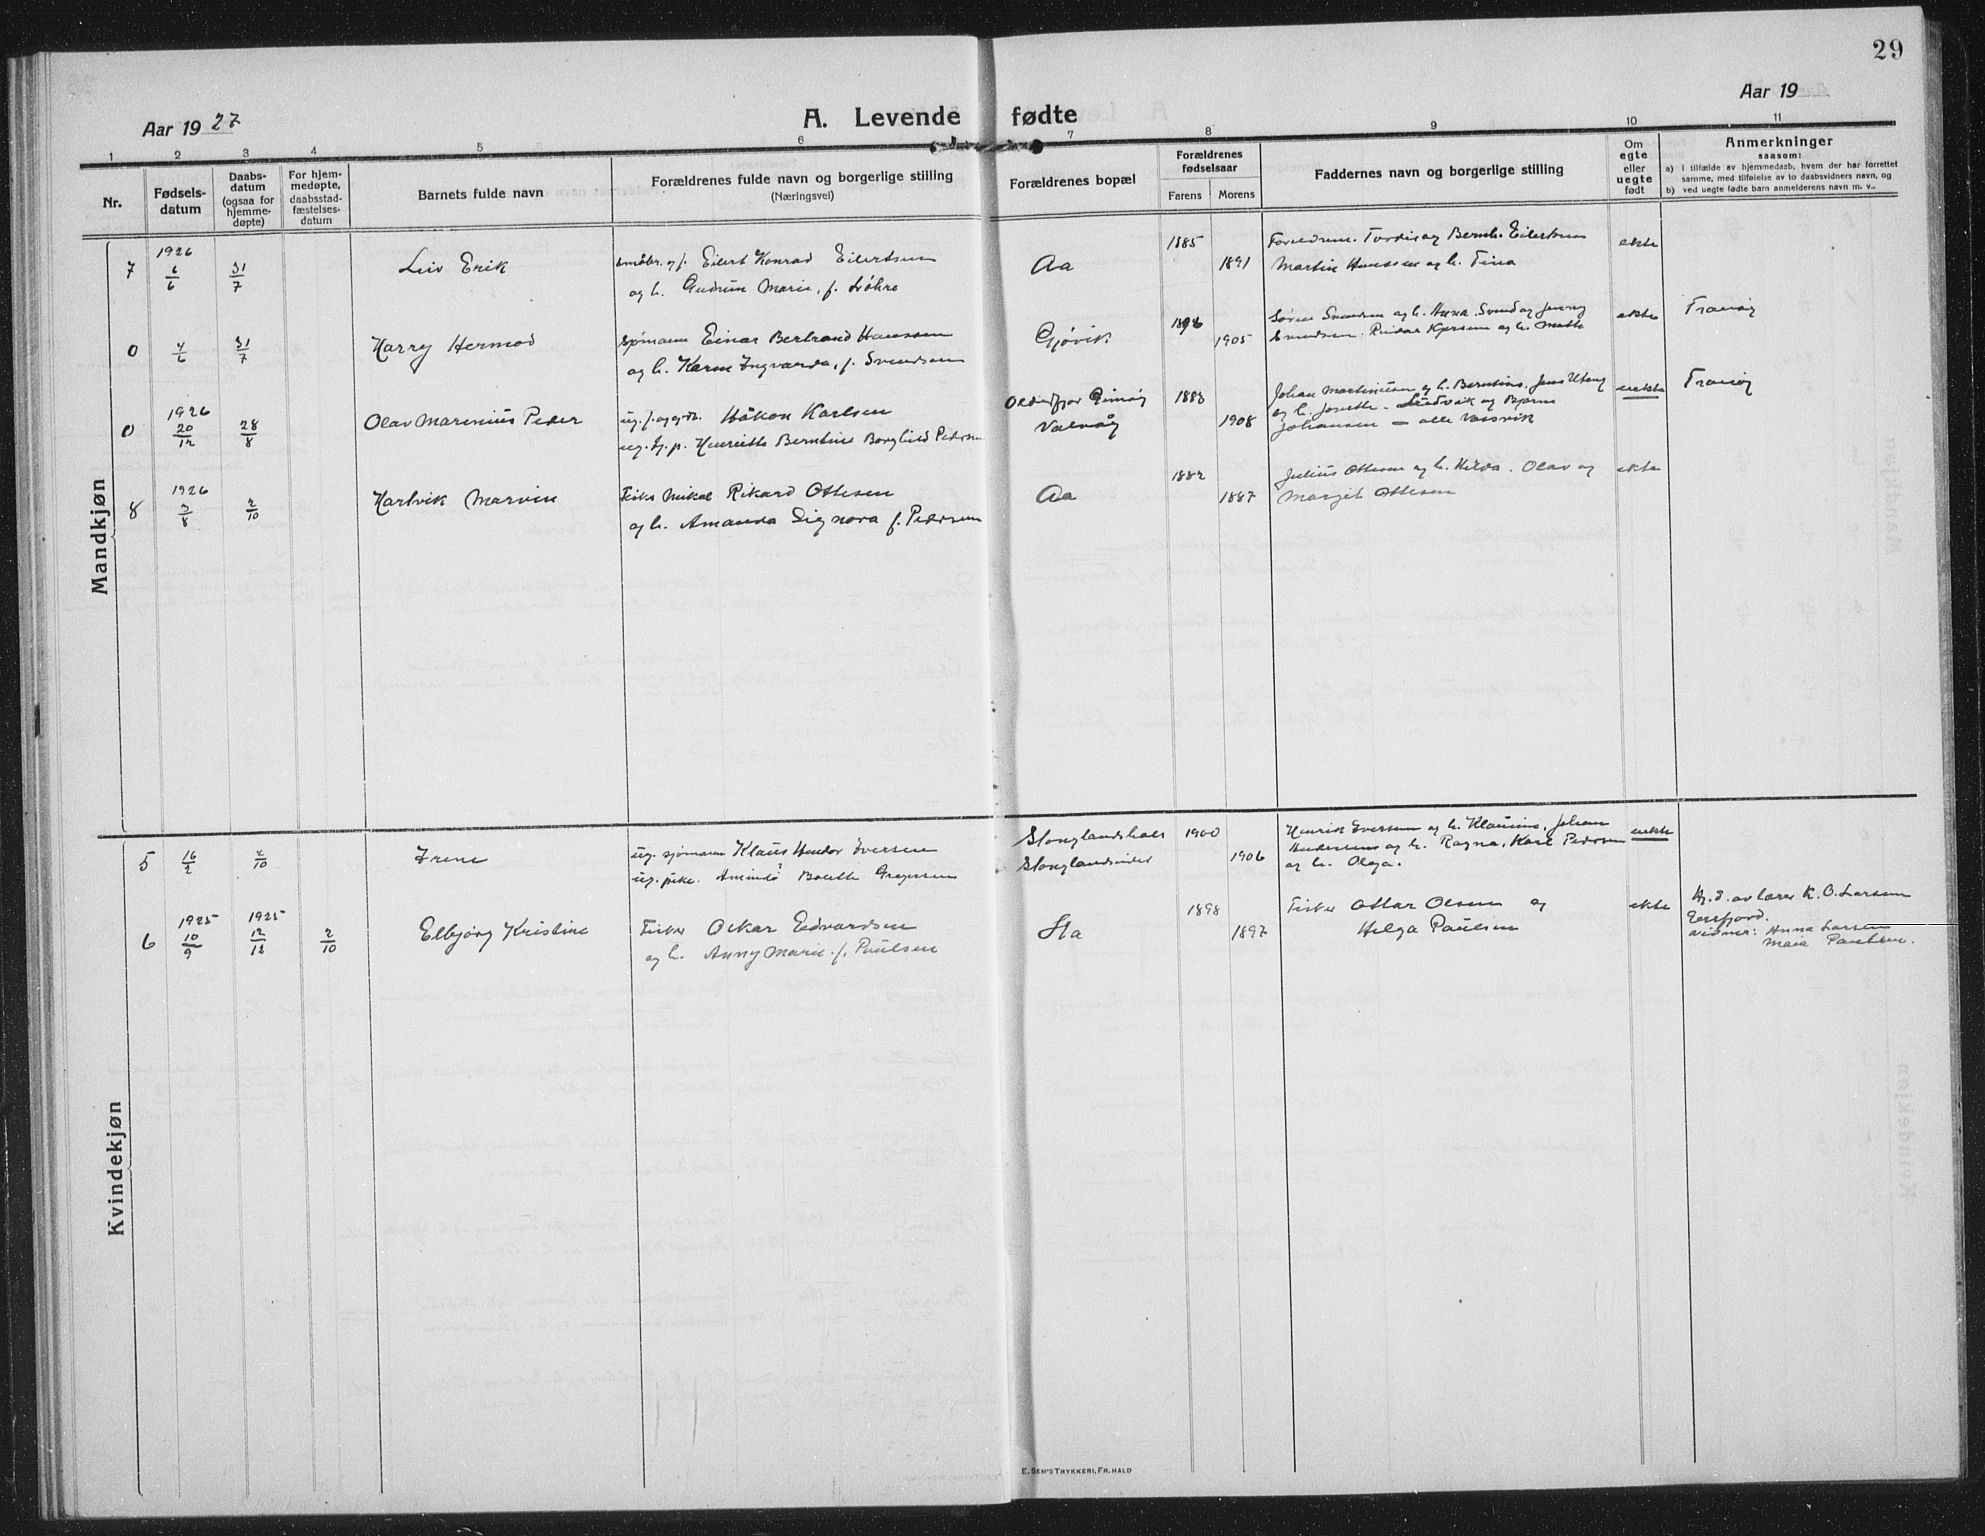 29
Aar 1927
A. Levende fødte
Aar 19
1 2 3 4 5 6 7 8 9 10 11
Nr.
Fødsels-
datum
Daabs-
datum
(ogsaa for
hjemme-
døpte)
For hjem-
medøpte,
daabsstad-
fæstelses-
datum
Barnets fulde navn
Forældrenes fulde navn og borgerlige stilling
(Næringsvei)
Forældrenes bopæl
Forældrenes
fødselsaar
Farens Morens
Faddernes navn og borgerlige stilling
Om
egte
eller
uegte
født
Anmerkninger
saasom:
a) I tilfælde av hjemmedaab, hvem der har forrettet
samme, med tilføielse av to daabsvidners navn, og
b) ved uegte fødte barn anmelderens navn m. v..
Mandkjøn
7 1926 6/6 31/7 Leiv Erik
småbr. og f. Eilert Konrad Eilertsen
og h. Gudrun Marie, f. Løhre
Aa 1885 1891
Foreldrene. Tordis og Bernh. Eilertsen
Martin Hanssen og h. Tina
ekte
0 4/6 31/7 Harry Hermod
sjømann Einar Bertrand Hanssen
og h. Karen Ingvarda, f. Svendsen
Gjøvik 1896 1905
Søren Svendsen og h. Anna. Svend og Jenny
Svendsen. Reidar og h. Mette
ekte Tranøy
0 1926 20/12 28/8 Olav Marinius Peder
ug. f. og grdbr. Håkon Karlsen
ug. tj. p. Henriette Berntine Borghild Pedersen
Gimsøy
Valvåg 1883 1908
Johan Martinussen og h. Berntine. Jens Uteng
og h. Josette – Ludvik og Bjarne
Johansen – alle Vassvik
uekte Tranøy
8 1926 7/8 2/10 Hartvik Marvin
Fisker Mikal Rikard Ottesen
og h. Amanda Signora f. Pedersen
Aa 1882 1887
Julius Ottesen og h. Hilda. Olav og
Margit Ottesen
ekte
Kvindekjøn
5 16/2 2/10 Irene
ug. sjømann Klaus Hendor Iversen
ug. pike. Aminda Bolette Gregersen
Stonglandshals
Stonglandseidet 1900 1906
Henrik Iversen og h. Klausine, Johan
og h. Ragna, Karl Pedersen
og h. Olga.
uekte
6 1925 10/9 1925 12/12 2/10 Elbjørg Kristine
Fisker Oskar Edvardsen
og h. Anny Marie f. Paulsen
Sta 1898 1897
Fisker Ottar Olsen og
Helga Paulsen
ekte
Hj. d. av lærer K. O. Larsen
Ersfjord.
vidner: Anna Larsen
Maia Paulsen.
E. SEM'S TRYKKERI, FR. HALD